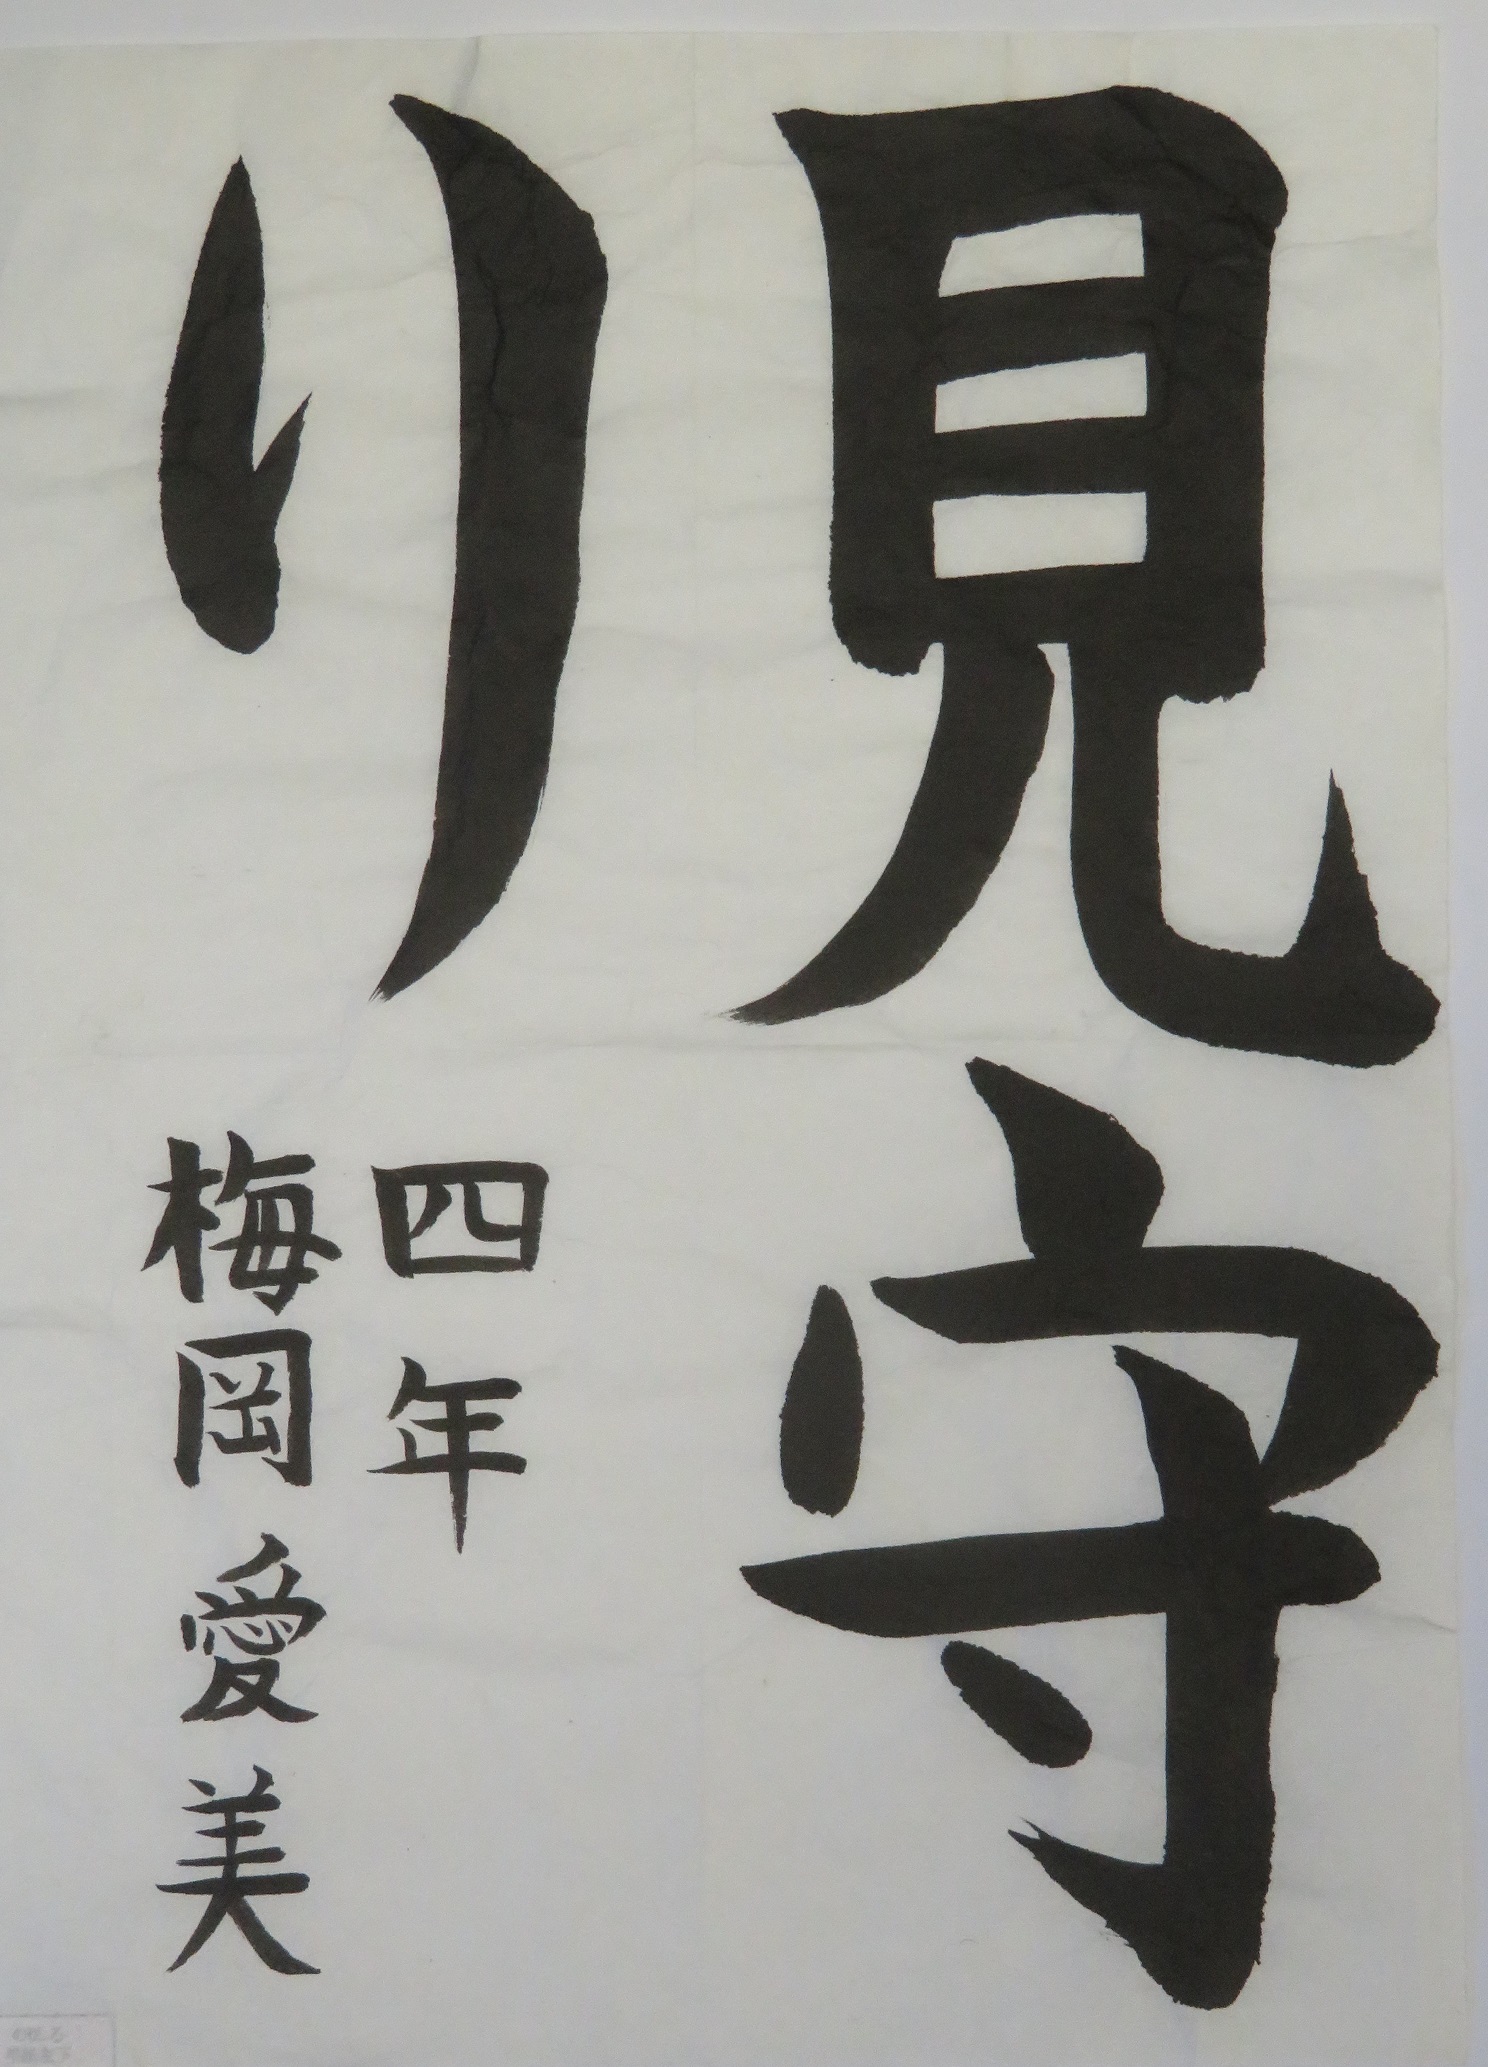 見守
り
四年
梅岡愛美